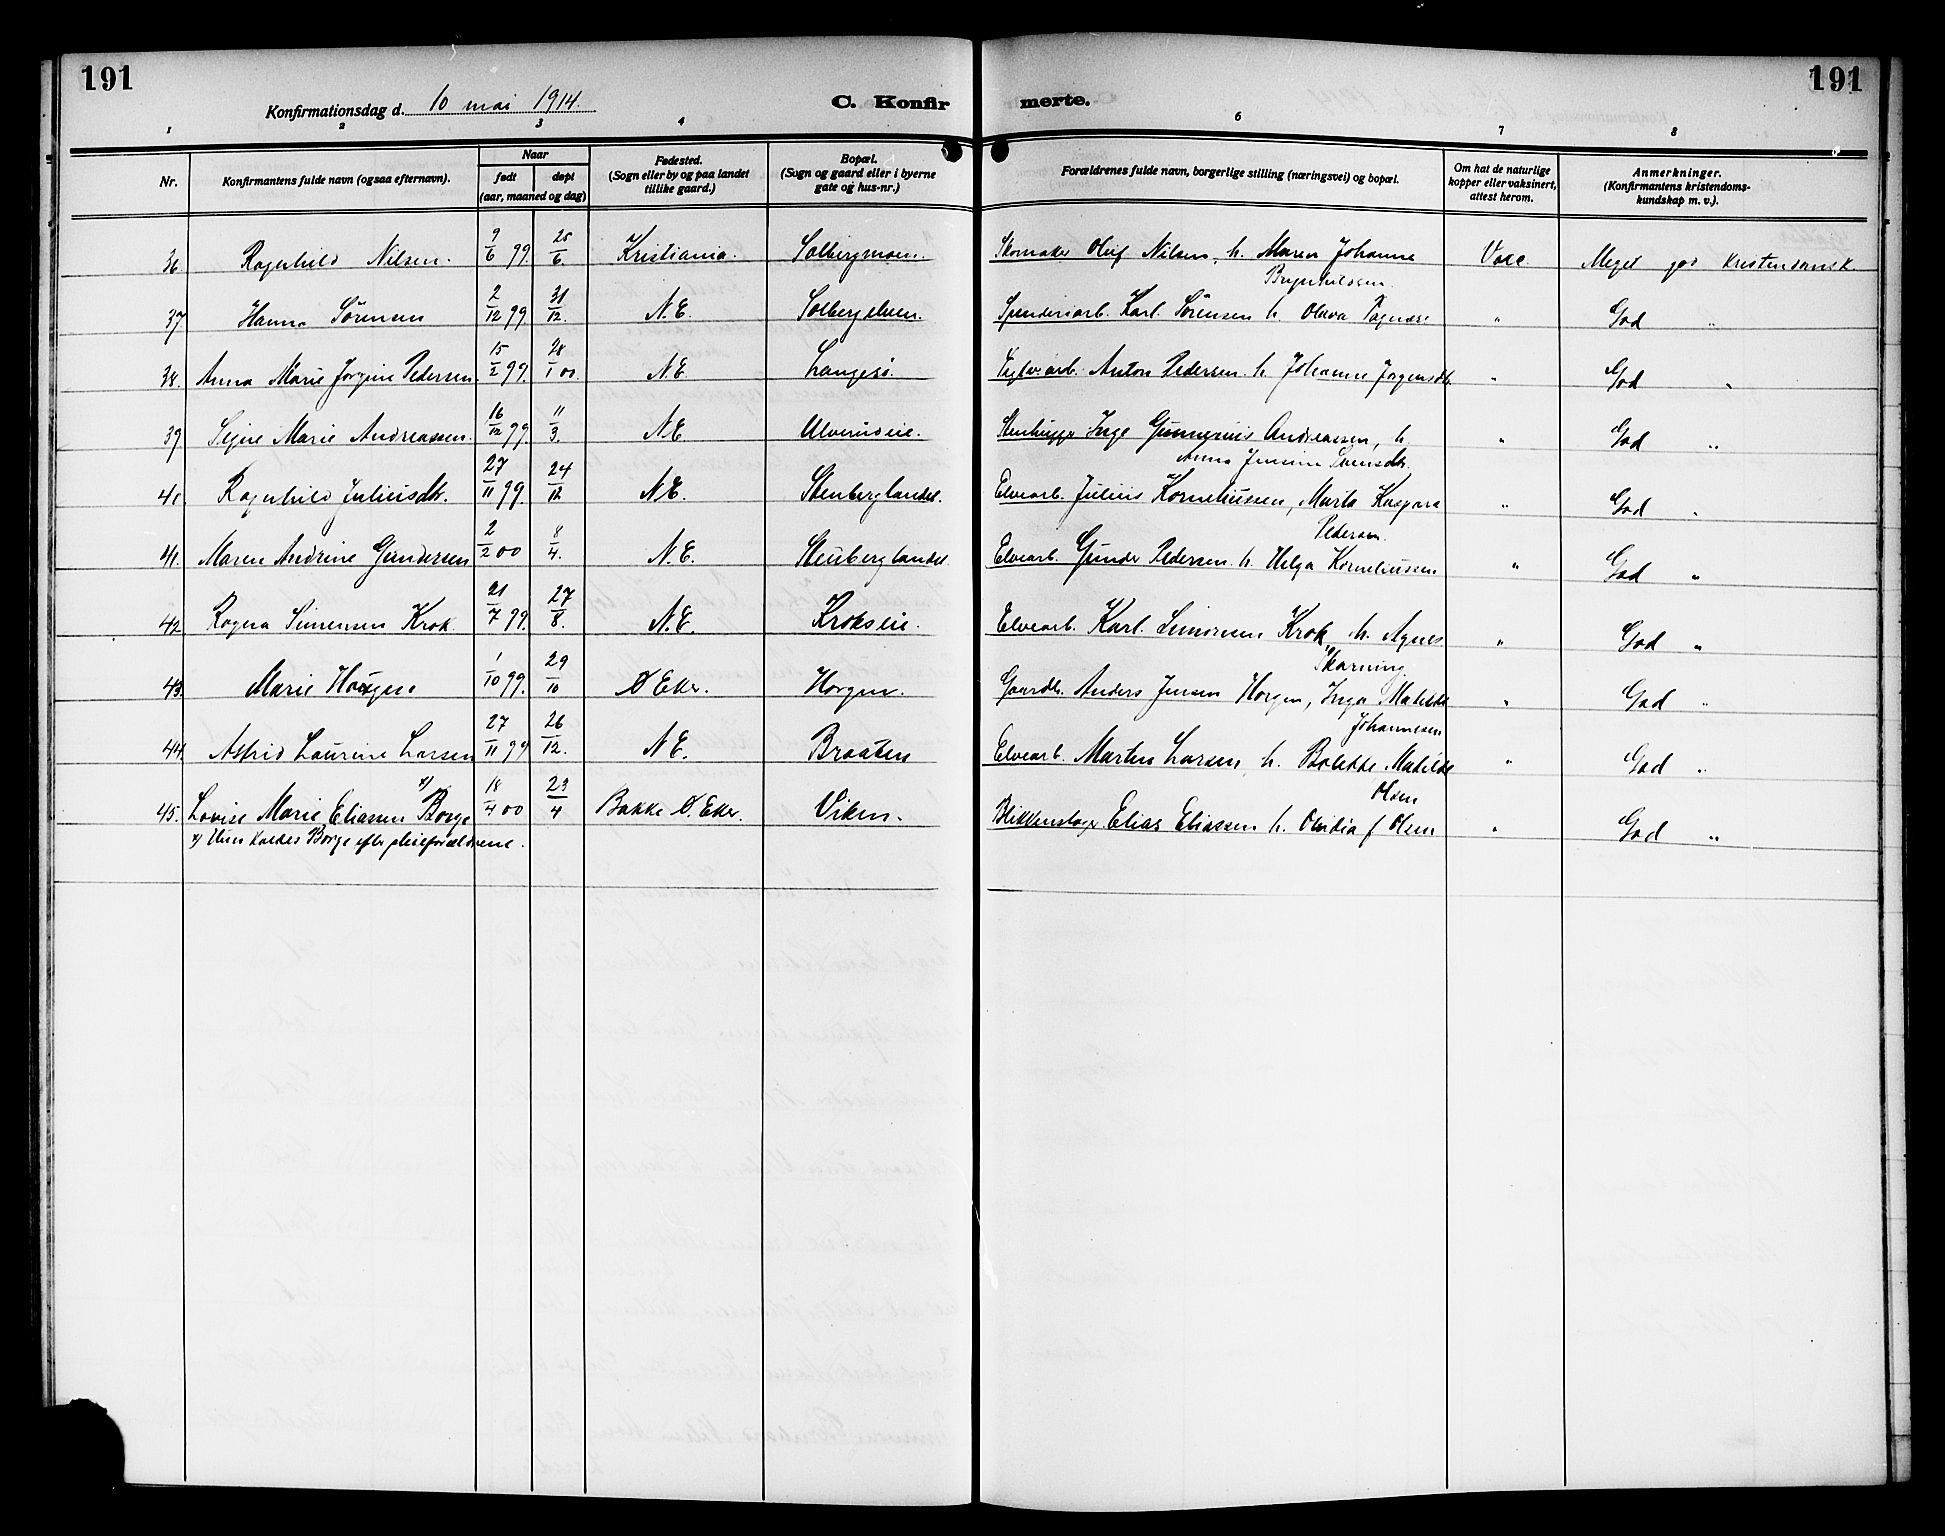 191
191
Konfirmationsdag d. 10 mai 1914.
C. Konfir merte.
1 2 3 4 6 7 8
Nr.
Konfirmantens fulde navn (ogsaa efternavn).
Naar
født
døpt
(aar, maaned og dag)
Fødested.
(Sogn eller by og paa landet
tillike gaard.)
Bopæl.
(Sogn og gaard eller i byerne
gate og hus-nr.)
Forældrenes fulde navn, borgerlige stilling (næringsvei) og bopæl.
Om hat de naturlige
kopper eller vaksinert,
attest herom.
Anmerkninger.
(Konfirmantens kristendoms-
kundskap m. v.).
36 Ragnhild Nilsen. 9/6 99. 25/6. Kristiania. Solbergmoen. Skomaker Oluf Nilsen, h. Maren Johanne Vacc. Meget god kristendomsk.
Brynhildsen.
37 Hanna Sörensen 2/12 99. 31/12. N. E. Solbergelven. Spinderiarb. Karl Sörensen h. Olava " God "
38. Anna Marie Jorgine Pedersen. 15/2 99. 28/1 00. N. E. Langesö. Anton Pedersen h. Johanne Jorgensdtr. " God "
39. Signe Marie Andreassen. 16/12 99. 11/3. N. E. Ulverudeie. Stenhugger Inge Gunnerius Andreassen, h. " God "
Anna Jensine Svensdtr.
41. Ragnhild Juliusdtr. 27/11 99. 24/12 N. E. Stenberglandet. Elvearb. Julius Korneliussen, Marta Kaspara " God "
Pedersen.
41. Maren Andrine Gundersen 2/2 00 8/4. N. E. Stenberglandet Elvearb. Gunder Pedersen h. Helga Korneliussen " God "
42 Ragna Simensen Krok. 21/7 99. 27/8. N. E. Krokseie. Elvearb. Karl Simensen Krok, h. Agnes " God "
Skarning.
43. Marie Horgen 1/10 99. 29/10 Ø Eker. Horgen. Gaardbr. Anders Jensen Horgen, Inga Matilde " God "
Johannesen
44. Astrid Laurine Larsen 27/11 99 26/12. N. E. Braaten Elvearb. Martin Larsen, h. Bolette Matilde " God "
Olsen
45. Lovise Marie Eliassen x) Borge 18/4 00 23/4 Bakke Ø. Eker. Viken. Blikkenslager Elias Eliassen h. Ovidia f Olsen " God "
x) Hun kaldes Borge efter pleieforældrene.